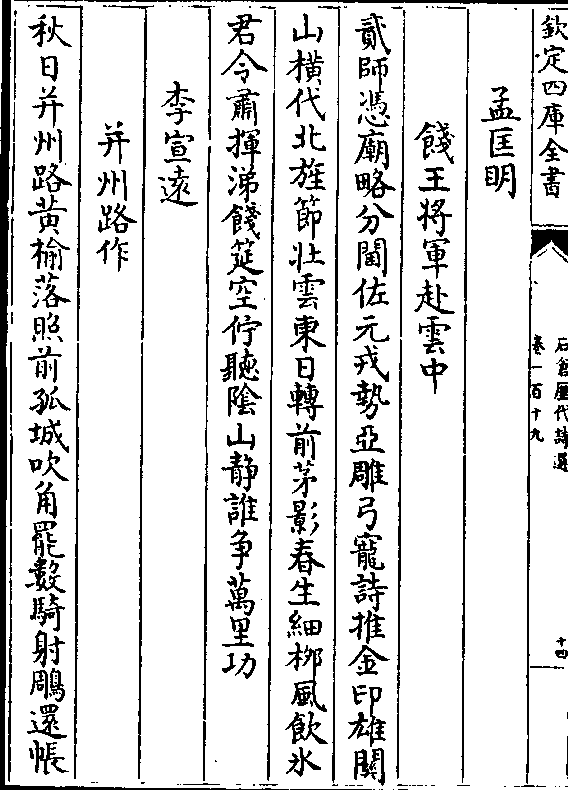 欽定四庫全書
石倉歷代詩選
卷一百十九
十四
孟匡明
餞王將軍赴雲中
貳師憑廟略分閫佐元戎勢亞雕弓寵詩推金印雄關
山横代北旌節壯雲東日轉前茅影春生細栁風飲氷
君令肅揮涕餞筵空佇聽隂山静誰争萬里功
李宣遠
并州路作
秋日并州路黄榆落照前孤城吹角罷數騎射鵰還帳